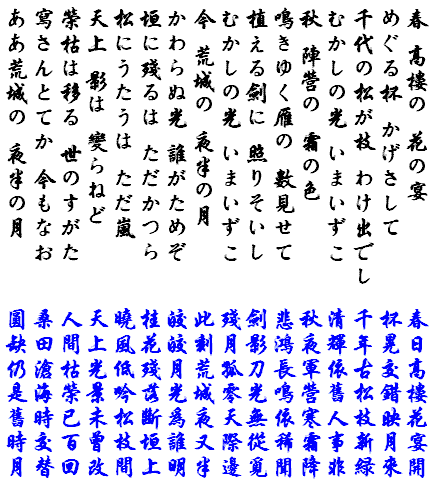 春 高樓の 花の宴
めぐる杯 かげさして
千代の松が枝 わけ出でし
むかしの光 いまいずこ
秋 陣營の 霜の色
鳴きゆく雁の 數見せて
植える劍に 照りそいし
むかしの光 いまいずこ
今 荒城の 夜半の月
かわらぬ光 誰がためぞ
垣に殘るは ただかつら
松にうたうは ただ嵐
天上 影は 變らねど
榮枯は移る 世のすがた
寫さんとてか 今もなお
ああ荒城の 夜半の月
春日高樓花宴開
杯晃交錯映月來
千年古松枝新綠
清輝依舊人事非
秋夜軍營寒霜降
悲鴻長鳴依稀聞
劍影刀光無從覓
殘月孤零天際邊
此刻荒城夜又半
皎皎月光爲誰明
桂花殘落斷垣上
曉風低吟松枝間
天上光景未曾改
人間枯榮已百回
桑田滄海時交替
圓缺仍是舊時月